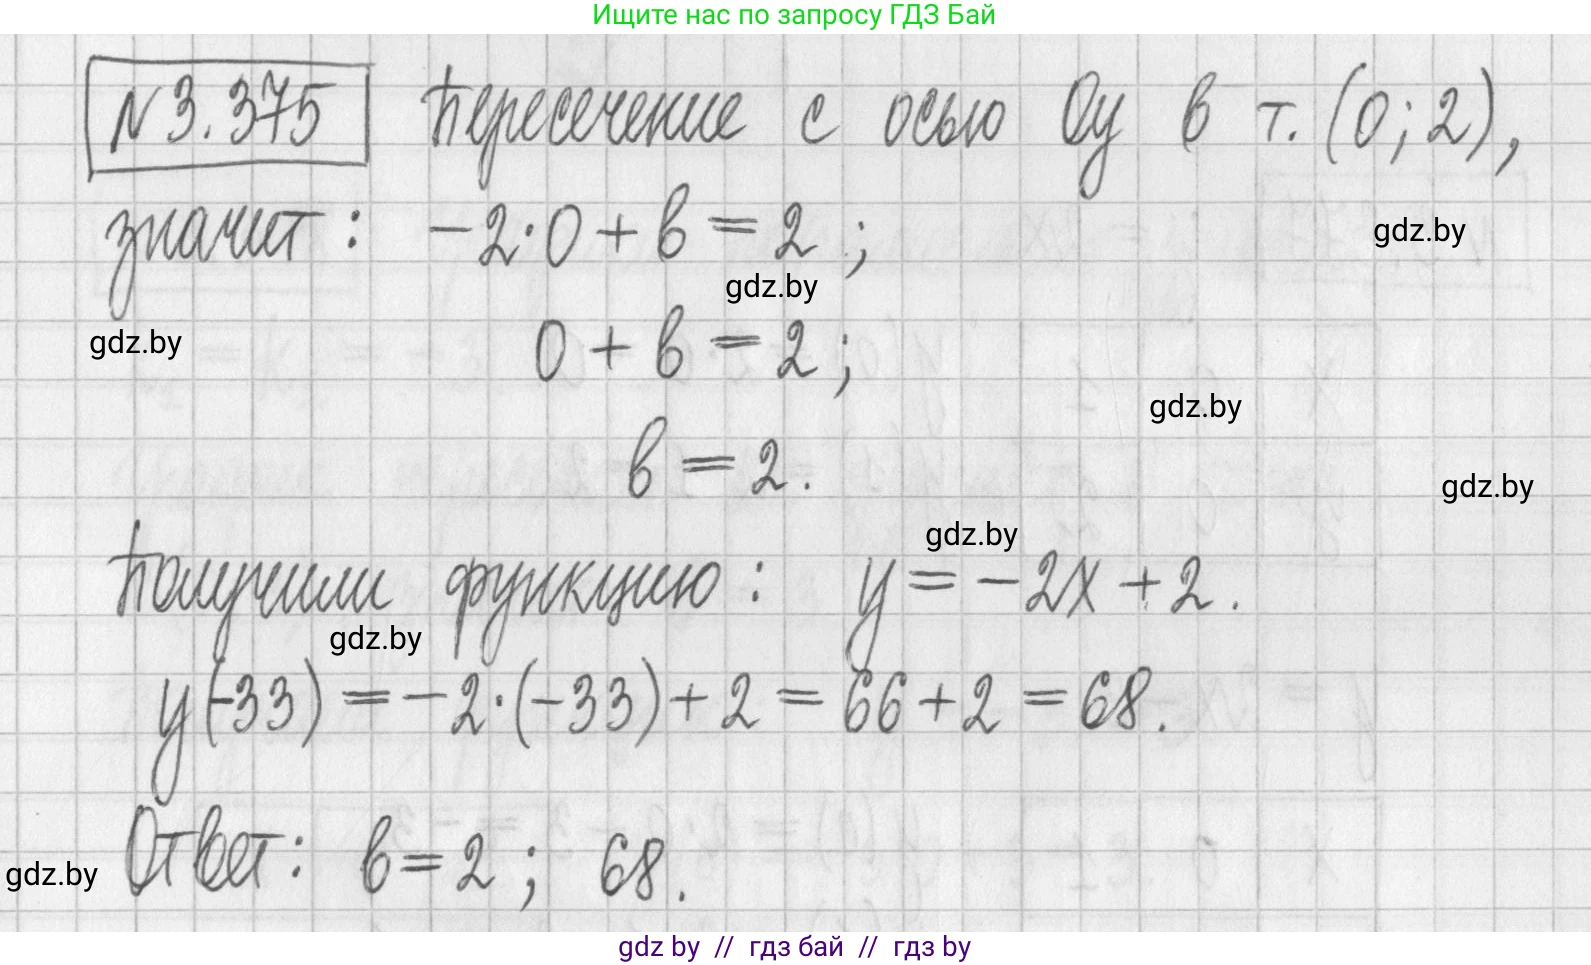 Ищите нас по запросу ГДЗ Бай
N 3.375 Пересечение с осью Оу в т. (0; 2),
значит: -2·0 + в = 2;
gdz.by
gdz.by
gdz.by
0 + в = 2;
gdz.by
в = 2.
gdz.by
gdz.by
Получили функцию: у = -2х + 2.
gdz.by
у(-33) = -2·(-33) + 2 = 66 + 2 = 68.
gdz.by
Ответ: в = 2; 68.
gdz by // гдз бай // гдз by